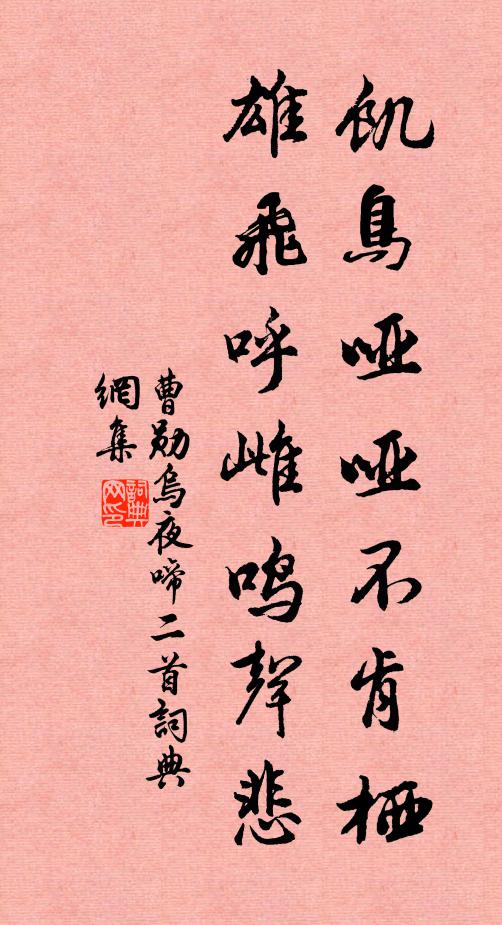 飢烏啞啞不肯栖
雄飛呼雌鳴聲悲
曹勛烏夜啼二首詞典
網集
詞典网印